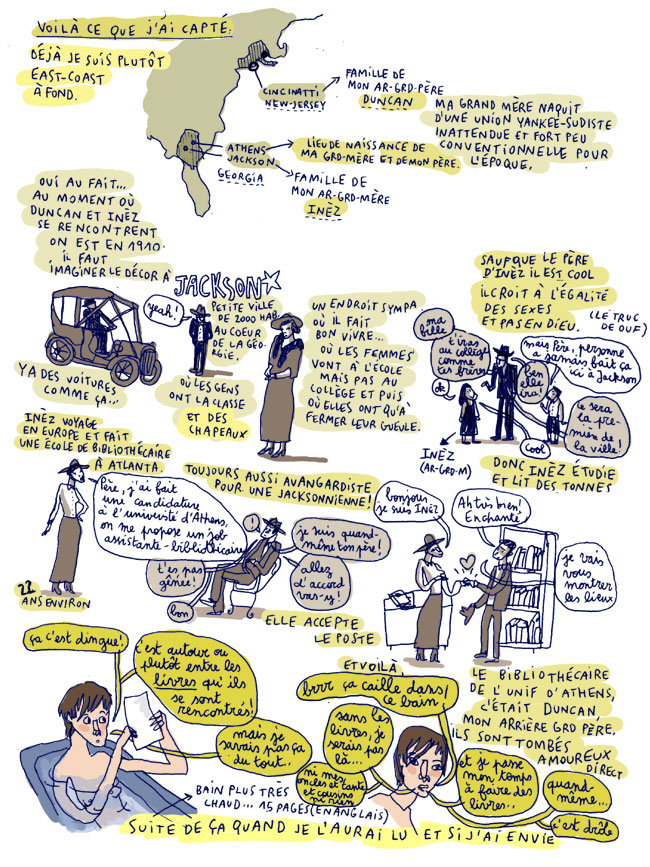 VOILÀ CE QUE J'AI CAPTÉ:
DÉJÀ JE SUIS PLUTÔT
EAST-COAST
À FOND.
CINCINATTI
NEW-JERSEY
FAMILLE DE
MON AR-GRD-PÈRE
DUNCAN
ATHENS
JACKSON
GEORGIA
LIEU DE NAISSANCE DE
MA GRD-MÈRE ET DE MON PÈRE.
FAMILLE DE
MON AR-GRD-MÈRE
INÈZ
MA GRAND MÈRE NAQUIT
D'UNE UNION YANKEE-SUDISTE
INATTENDUE ET FORT PEU
CONVENTIONNELLE POUR
L'ÉPOQUE.
OUI AU FAIT...
AU MOMENT OÙ
DUNCAN ET INÈZ
SE RENCONTRENT
ON EST EN 1910.
IL FAUT
IMAGINER LE DÉCOR À
JACKSON
yeah!
PETITE VILLE
DE 2000 HAB.
AU COEUR
DE LA GÉO-
RGIE.
Y A DES VOITURES
COMME ÇA...
OÙ LES GENS
ONT LA CLASSE
ET DES
CHAPEAUX
UN ENDROIT SYMPA
OÙ IL FAIT
BON VIVRE...
OÙ LES FEMMES
VONT À L'ÉCOLE
MAIS PAS AU
COLLÈGE ET PUIS
OÙ ELLES ONT QU'À
FERMER LEUR GUEULE.
SAUF QUE LE PÈRE
D'INÈZ IL EST COOL
IL CROIT À L'ÉGALITÉ
DES SEXES
ET PAS EN DIEU.
(LE TRUC
DE OUF)
ma
fille
t'iras
au collège
comme
tes frères
ok
mais Père, personne
a jamais fait ça
ici à Jackson
ben
elle
ira!
ce sera
la pre-
mière de
la ville!
cool
INÈZ
(AR-GRD-M)
DONC INÈZ ÉTUDIE
ET LIT DES TONNES
INÈZ VOYAGE
EN EUROPE ET FAIT
UNE ÉCOLE DE BIBLIOTHÉCAIRE
À ATLANTA.
22
ANS ENVIRON
TOUJOURS AUSSI AVANGARDISTE
POUR UNE JACKSONNIENNE!
Père, j'ai fait
une candidature
à l'université d'Athens,
on me propose un job
assistante-bibliothécaire
!
je suis quand-
même ton père!
t'es pas
gênée!
allez
d'accord
vas-y!
bon
ELLE ACCEPTE
LE POSTE
bonjour
je suis INÈZ
Ah très bien!
Enchanté
je vais
vous
montrer
les lieux
ça c'est dingue!
c'est autour ou
plutôt entre les
livres qu'ils
se sont
rencontrés!
mais je
savais pas ça
du tout..
BAIN PLUS TRÈS
CHAUD... 15 PAGES (EN ANGLAIS)
ET VOILÀ
brrr ça caille dans
ce bain!
sans les
livres, je
serais pas
là...
ni mes
oncles et tante
et cousins
ni rien
et je passe
mon temps
à faire des
livres..
quand-
même...
c'est drôle
LE BIBLIOTHÉCAIRE
DE L'UNIF D'ATHENS,
C'ÉTAIT DUNCAN,
MON ARRIÈRE GRD PÈRE,
ILS SONT TOMBÉS
AMOUREUX
DIRECT
SUITE DE ÇA QUAND JE L'AURAI LU ET SI J'AI ENVIE